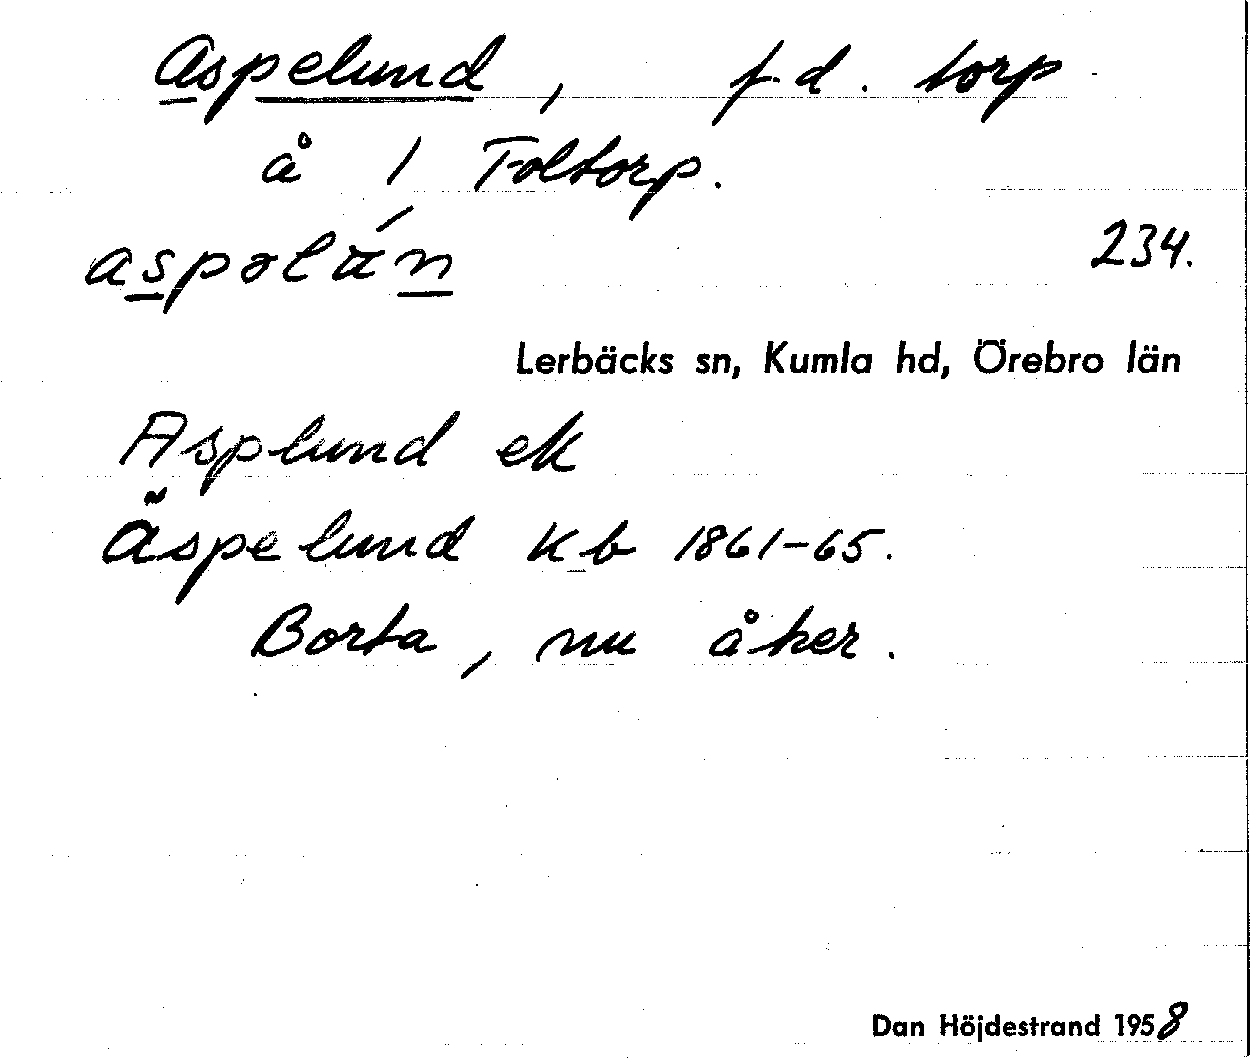 Aspelund, f.d. torp
å 1 Foltorp.
aspəlán 234.
Lerbäcks sn, Kumla hd, Örebro län
Asplund ek
Äspelund kb 1861-65.
Borta, nu åker.
Dan Höjdestrand 1958